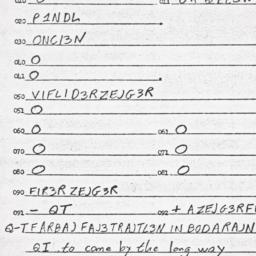 020 P1NDL.
030 ONCI3N
010 O
011 O.
050 VIFLID3RZEJG3R
051 O
060 O 061 O
070 O 071 O
080 O 081 O
090 FIR3RZEJG3R
091 - QT 092 + AZEJG3RF
Q-TFARBAJFAJ3TRAJTL3N IN BODARAJN
QI to come by the long way